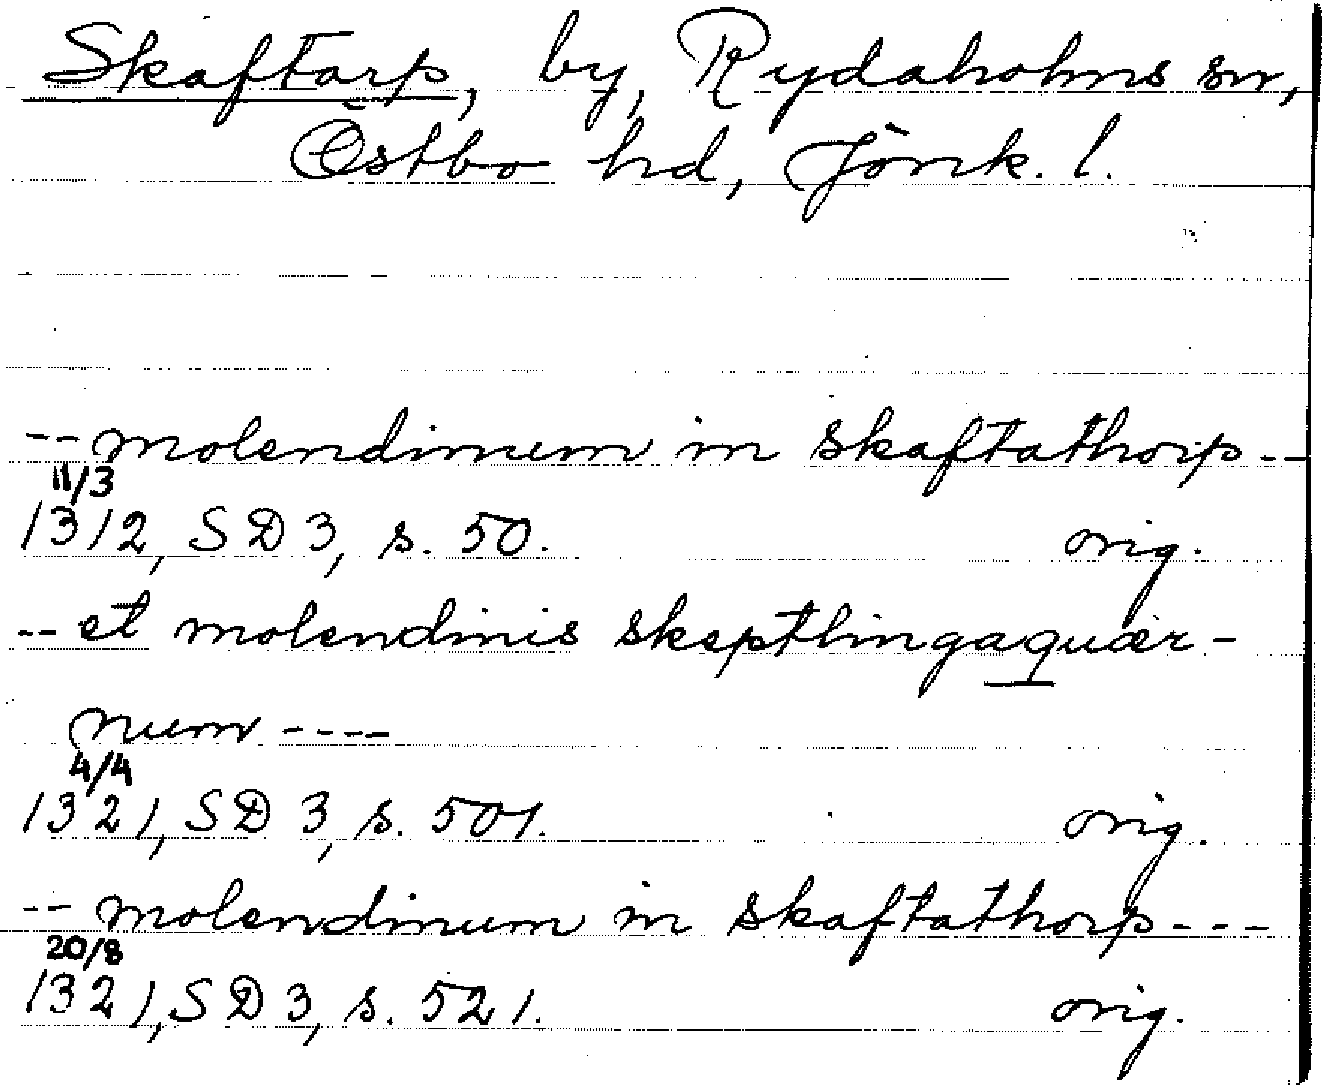 Skaftarp, by, Rydaholms sn,
Östbo hd, Jönk. l.
-- molendinum in skaftathorp --
11/3
1312, SD 3, s. 50. orig.
-- et molendinis skepthlingaquær-
num ----
4/4
1321, SD 3, s. 501. orig.
-- molendinum in skaftathorp ---
20/8
1321, SD 3, s. 521. orig.